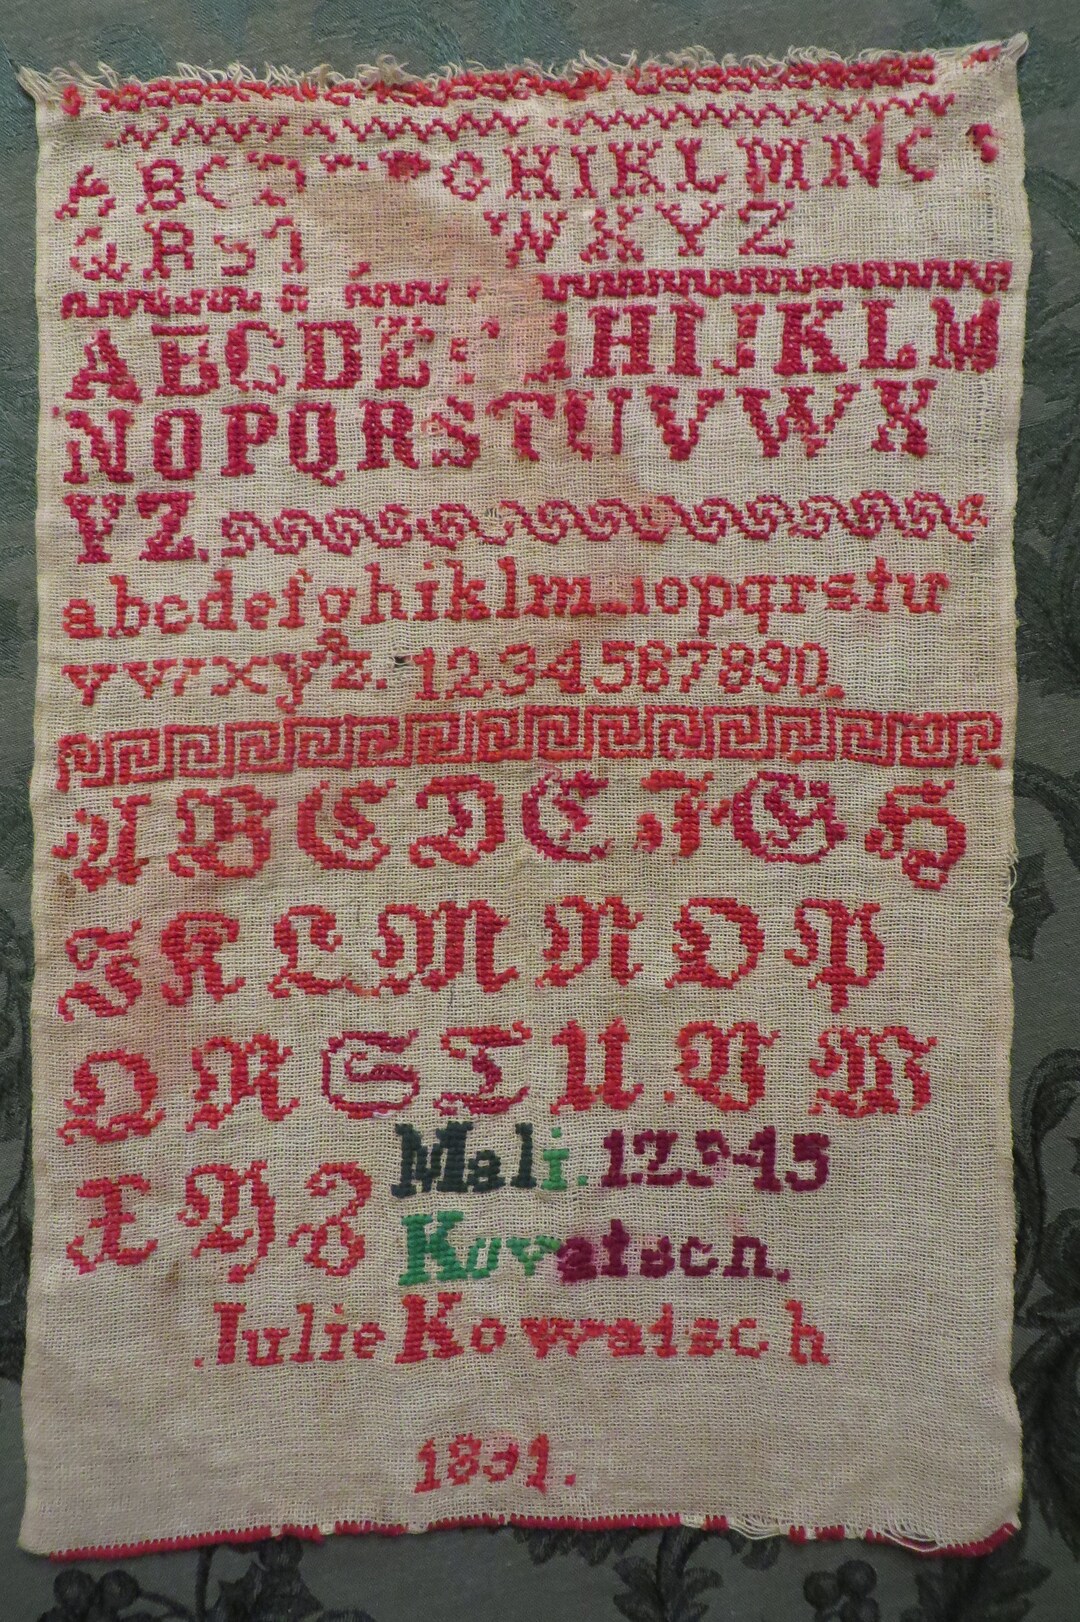 A B C G H I K L M N
Q R S T W X Y Z
A B C D E H I J K L M
N O P Q R S T U V W X
Y Z.
a b c d e f g h i k l m n o p q r s t u
v w x y z. 1 2 3 4 5 6 7 8 9 0.
A B C D E F G H
J K L M N O P
Q R S T U V W
X Y Z
Mali. 12345
Kowatsch.
Julie Kowatsch
1891.